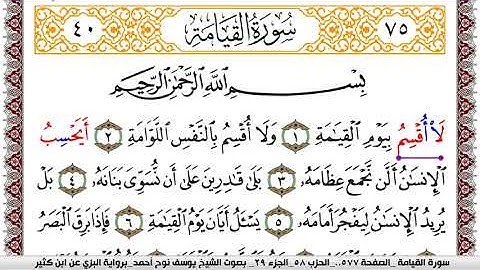 ٧٥ سُورَةُ القِيَامَةِ ٤٠
بِسْمِ اللَّهِ الرَّحْمَٰنِ الرَّحِيمِ
لَا أُقْسِمُ بِيَوْمِ الْقِيَٰمَةِ ١ وَلَا أُقْسِمُ بِالنَّفْسِ اللَّوَّامَةِ ٢ أَيَحْسِبُ
الْإِنسَٰنُ أَلَّن نَّجْمَعَ عِظَامَهُ ٣ بَلَىٰ قَٰدِرِينَ عَلَىٰ أَن نُّسَوِّيَ بَنَانَهُ ٤ بَلْ
يُرِيدُ الْإِنسَٰنُ لِيَفْجُرَ أَمَامَهُ ٥ يَسْـَٔلُ أَيَّانَ يَوْمُ الْقِيَٰمَةِ ٦ فَإِذَا بَرِقَ الْبَصَرُ
سورة القيامة _الصفحة ٥٧٧.. الحزب ٥٨ _الجزء ٢٩ _ بصوت الشيخ يوسف نوح أحمد_برواية البزي عن ابن كثير